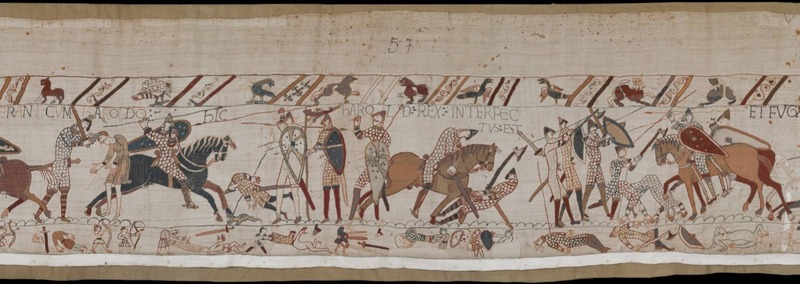 57
RANT: CVM HAROLDO:- hIC HAROLD:REX:INTERFEC
TVS:EST
ET FVG